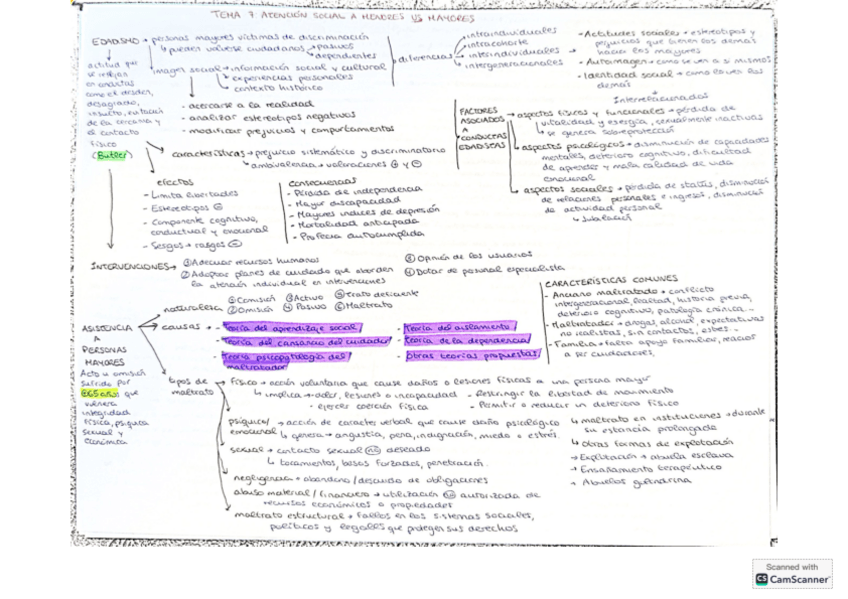 TEMA 7 ATENCIÓN SOCIAL A MENORES VS MAYORES
EDADISMO → personas mayores víctimas de discriminación
↳ pueden volverse ciudadanos → pasivos
→ dependientes
actitud que
se reflejan
en conductas
como el desdén,
desagrado,
insulto, evitación
de la cercanía y
el contacto
físico
(Butler)
imagen social → información social y cultural
↳ experiencias personales
↳ contexto histórico
- acercarse a la realidad
- analizar estereotipos negativos
- modificar prejuicios y comportamientos
diferencias
intraindividuales
intracohorte
interindividuales
intergeneracionales
- Actitudes sociales → estereotipos y
prejuicios que tienen los demás
hacia los mayores
- Autoimagen → como se ven a sí mismos
- Identidad social → como los ven los
demás
Interrelacionados
características → prejuicio sistemático y discriminatorio
↳ ambivalencia → valoraciones ⊕ y ⊖
FACTORES
ASOCIADOS
A
CONDUCTAS
EDADISTAS
aspectos físicos y funcionales → pérdida de
vitalidad y energía, sexualmente inactivos
↳ se genera sobreprotección
aspectos psicológicos → disminución de capacidades
mentales, deterioro cognitivo, dificultad
de aprender y mala calidad de vida
emocional
aspectos sociales → pérdida de status, disminución
de relaciones personales e ingresos, disminución
de actividad personal
↳ jubilación
efectos
- Limita libertades
- Estereotipos ⊖
- Componente cognitivo,
conductual y emocional
- Sesgos → rasgos ⊖
consecuencias
- Pérdida de independencia
- Mayor discapacidad
- Mayores índices de depresión
- Mortalidad anticipada
- Profecía autocumplida
INTERVENCIONES → ① Adecuar recursos humanos
② Adoptar planes de cuidado que aborden
la atención individual en intervenciones
③ Opinión de los usuarios
④ Dotar de personal especialista
ASISTENCIA
A
PERSONAS
MAYORES
Acto u omisión
sufrido por
≥65 años que
vulnera
integridad
física, psíquica
sexual y
económica
naturaleza ① Comisión ③ Activo ⑤ Trato deficiente
② Omisión ④ Pasivo ⑥ Maltrato
causas → - Teoría del aprendizaje social
- Teoría del cansancio del cuidador
- Teoría psicopatología del
maltratador
- Teoría del aislamiento
- Teoría de la dependencia
- Otras teorías propuestas
CARACTERÍSTICAS COMUNES
- Anciano maltratado → conflicto
intergeneracional, lealtad, historia previa,
deterioro cognitivo, patología crónica...
- Maltratador → drogas, alcohol, expectativas
no realistas, sin contactos, estrés...
- Familia → falta apoyo familiar,
a ser cuidadores,
tipos de
maltrato
físico → acción voluntaria que cause daños o lesiones físicas a una persona mayor
↳ implica → dolor, lesiones o incapacidad - Restringir la libertad de movimiento
- ejercer coerción física - Permitir o reducir un deterioro físico
psíquico/
emocional
→ acción de carácter verbal que cause daño psicológico
↳ genera → angustia, pena, indignación, miedo o estrés
sexual → contacto sexual no deseado
↳ tocamientos, besos forzados, penetración.
negligencia → abandono / descuido de obligaciones
abuso material / financiero → utilización no autorizada de
recursos económicos o propiedades
maltrato estructural → fallos en los sistemas sociales,
políticos y legales que protegen sus derechos
↳ maltrato en instituciones → durante
su estancia prolongada
↳ Otras formas de explotación
→ Explotación → abuela esclava
→ Ensañamiento terapéutico
→ Abuelos golondrina
Scanned with
CS CamScanner